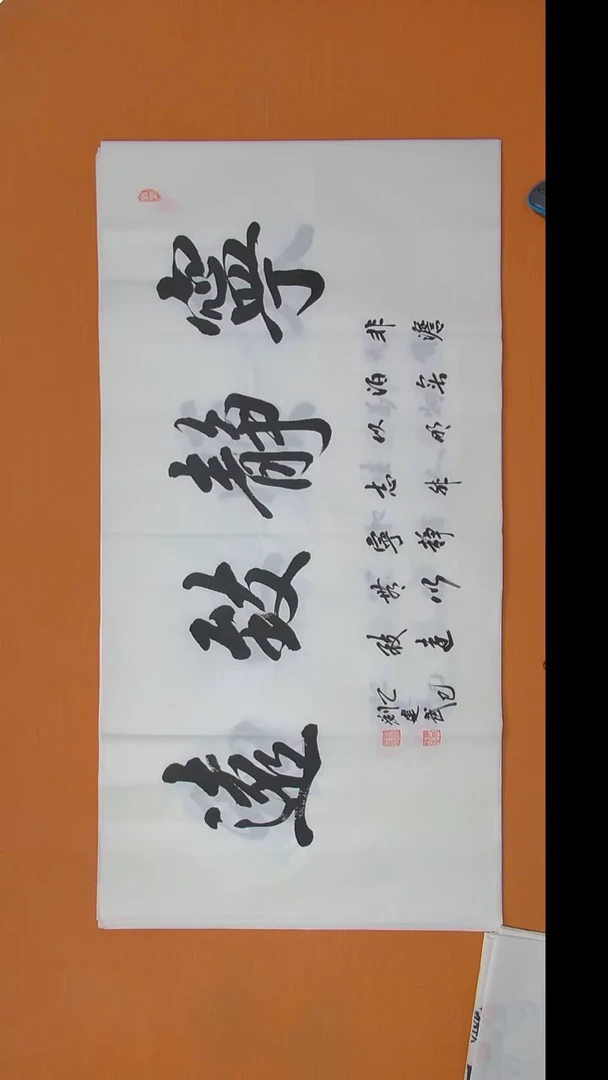 寧靜致遠
非澹
泊無
以明
志非
寧靜
無以
致遠
乙巳
劉建武